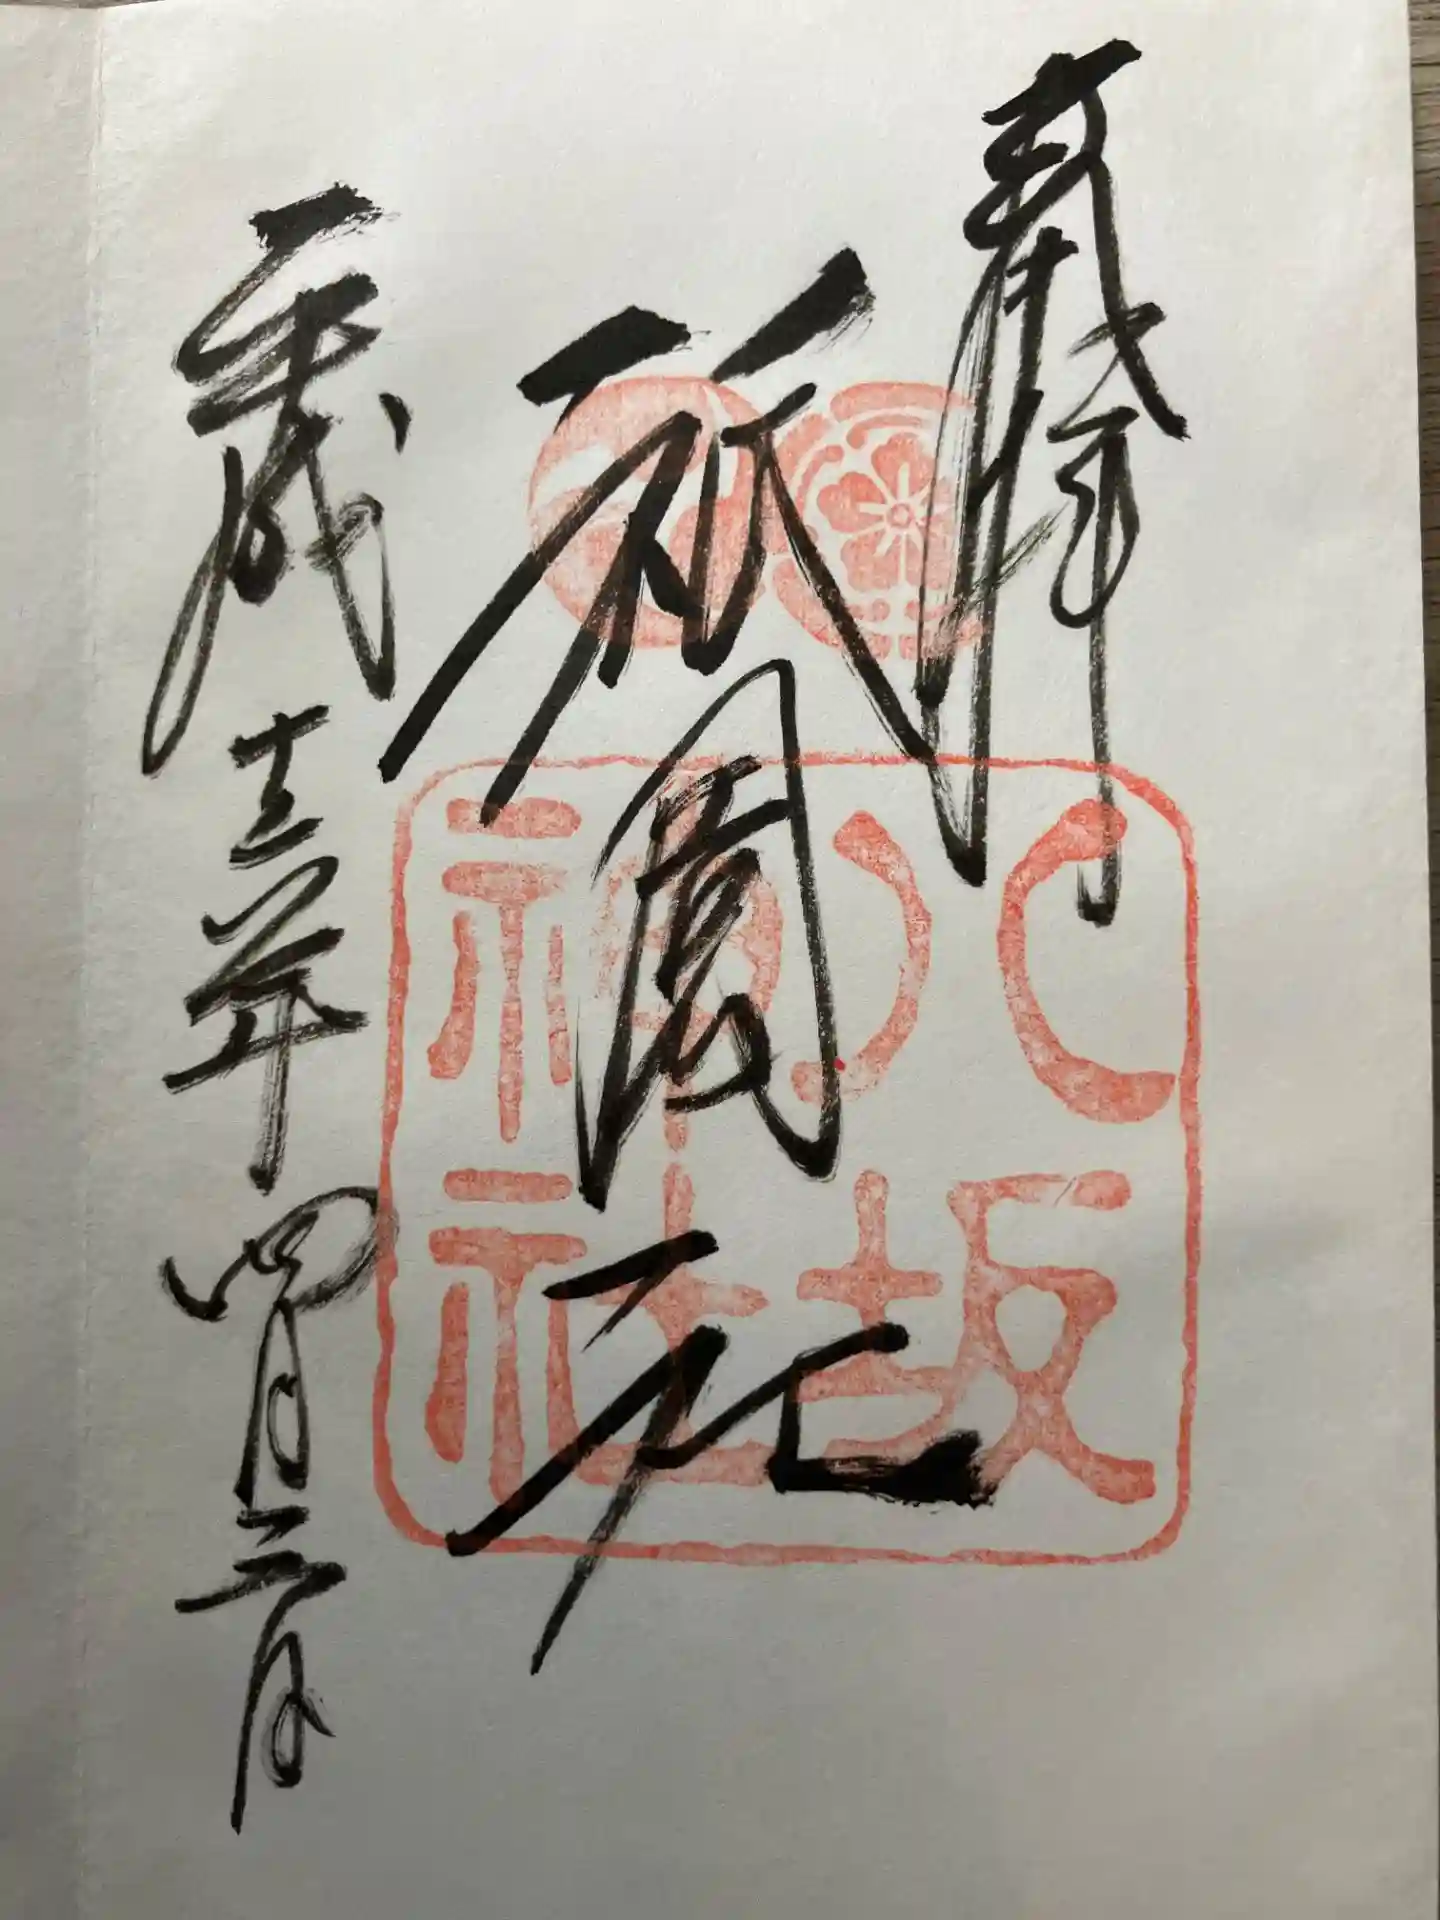 奉拝
祇園社
八坂神社
平成十三年四月